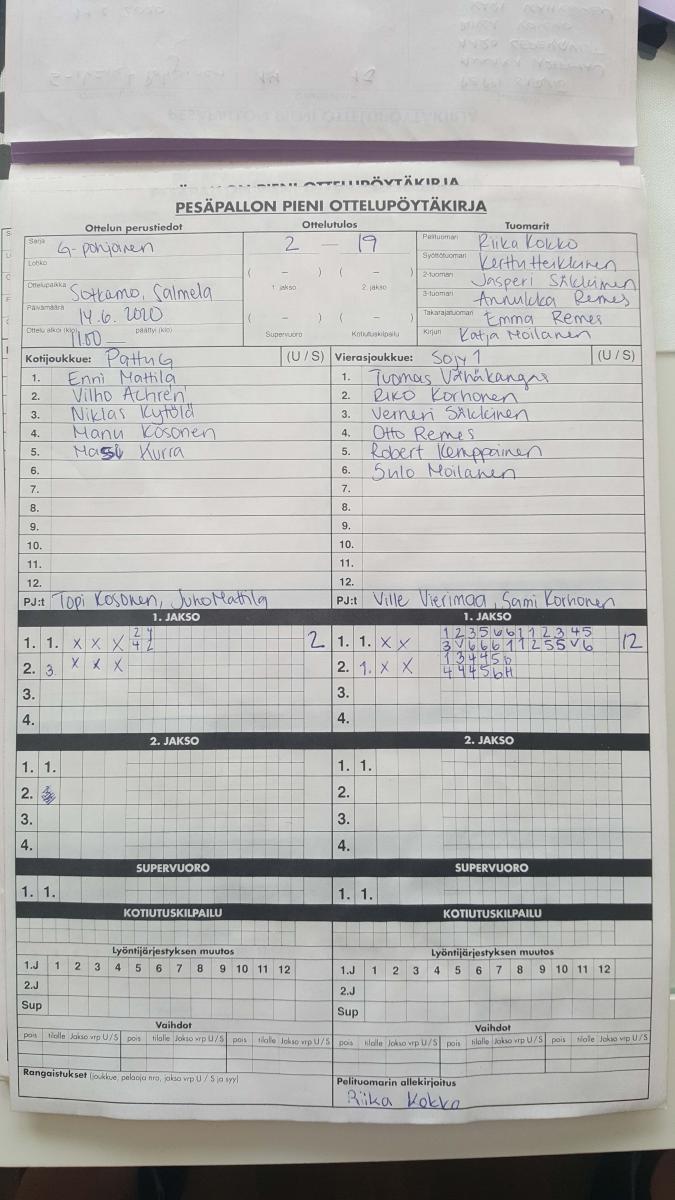 PESÄPALLON PIENI OTTELUPÖYTÄKIRJA
Ottelun perustiedot Ottelutulos Tuomarit
Sarja G-pohjoinen 2 — 19 Pelituomari Riika Kokko
Lohko ( – ) ( – ) Syöttötuomari Kerttu Heikkinen
Ottelupaikka Sotkamo, Salmela 1. jakso 2. jakso 2-tuomari Jasperi Sikkinen
Päivämäärä 14.6.2020 ( – ) ( – ) 3-tuomari Annukka Remes
Takarajatuomari Emma Remes
Ottelu alkoi (klo) 11.00 — päättyi (klo) Supervuoro Kotiutuskilpailu Kirjuri Katja Moilanen
Kotijoukkue: Pattu G (U / S) Vierasjoukkue: Sojy 1 (U / S)
1. Enni Mattila 1. Tuomas Vähäkangas
2. Vilho Achrén 2. Riko Korhonen
3. Niklas Kytölä 3. Verneri Sikkinen
4. Manu Kosonen 4. Otto Remes
5. Kurra 5. Robert Kemppainen
6. 6. Sulo Moilanen
7. 7.
8. 8.
9. 9.
10. 10.
11. 11.
12. 12.
PJ:t Topi Kosonen, Juho Mattila PJ:t Ville Vierimaa, Sami Korhonen
1. JAKSO 1. JAKSO
2 4 1 2 3 5 6 6 1 1 2 3 4 5
1. 1. X X X 4 2 2 1. 1. X X 3 V 6 6 6 1 1 2 5 5 V 6 12
1 3 4 4 5 6
2. 3 X X X 2. 1. X X 4 4 4 5 6 H
3. 3.
4. 4.
2. JAKSO 2. JAKSO
1. 1. 1. 1.
2. 2.
3. 3.
4. 4.
SUPERVUORO SUPERVUORO
1. 1. 1. 1.
KOTIUTUSKILPAILU KOTIUTUSKILPAILU
Lyöntijärjestyksen muutos Lyöntijärjestyksen muutos
1.J 1 2 3 4 5 6 7 8 9 10 11 12 1.J 1 2 3 4 5 6 7 8 9 10 11 12
2.J 2.J
Sup Sup
Vaihdot Vaihdot
pois tilalle Jakso vrp U / S pois tilalle Jakso vrp U / S pois tilalle Jakso vrp U / S pois tilalle Jakso vrp U / S pois tilalle Jakso vrp U / S pois tilalle Jakso vrp U / S
Rangaistukset (joukkue, pelaaja nro, jakso vrp U / S ja syy) Pelituomarin allekirjoitus
Riika Kokko